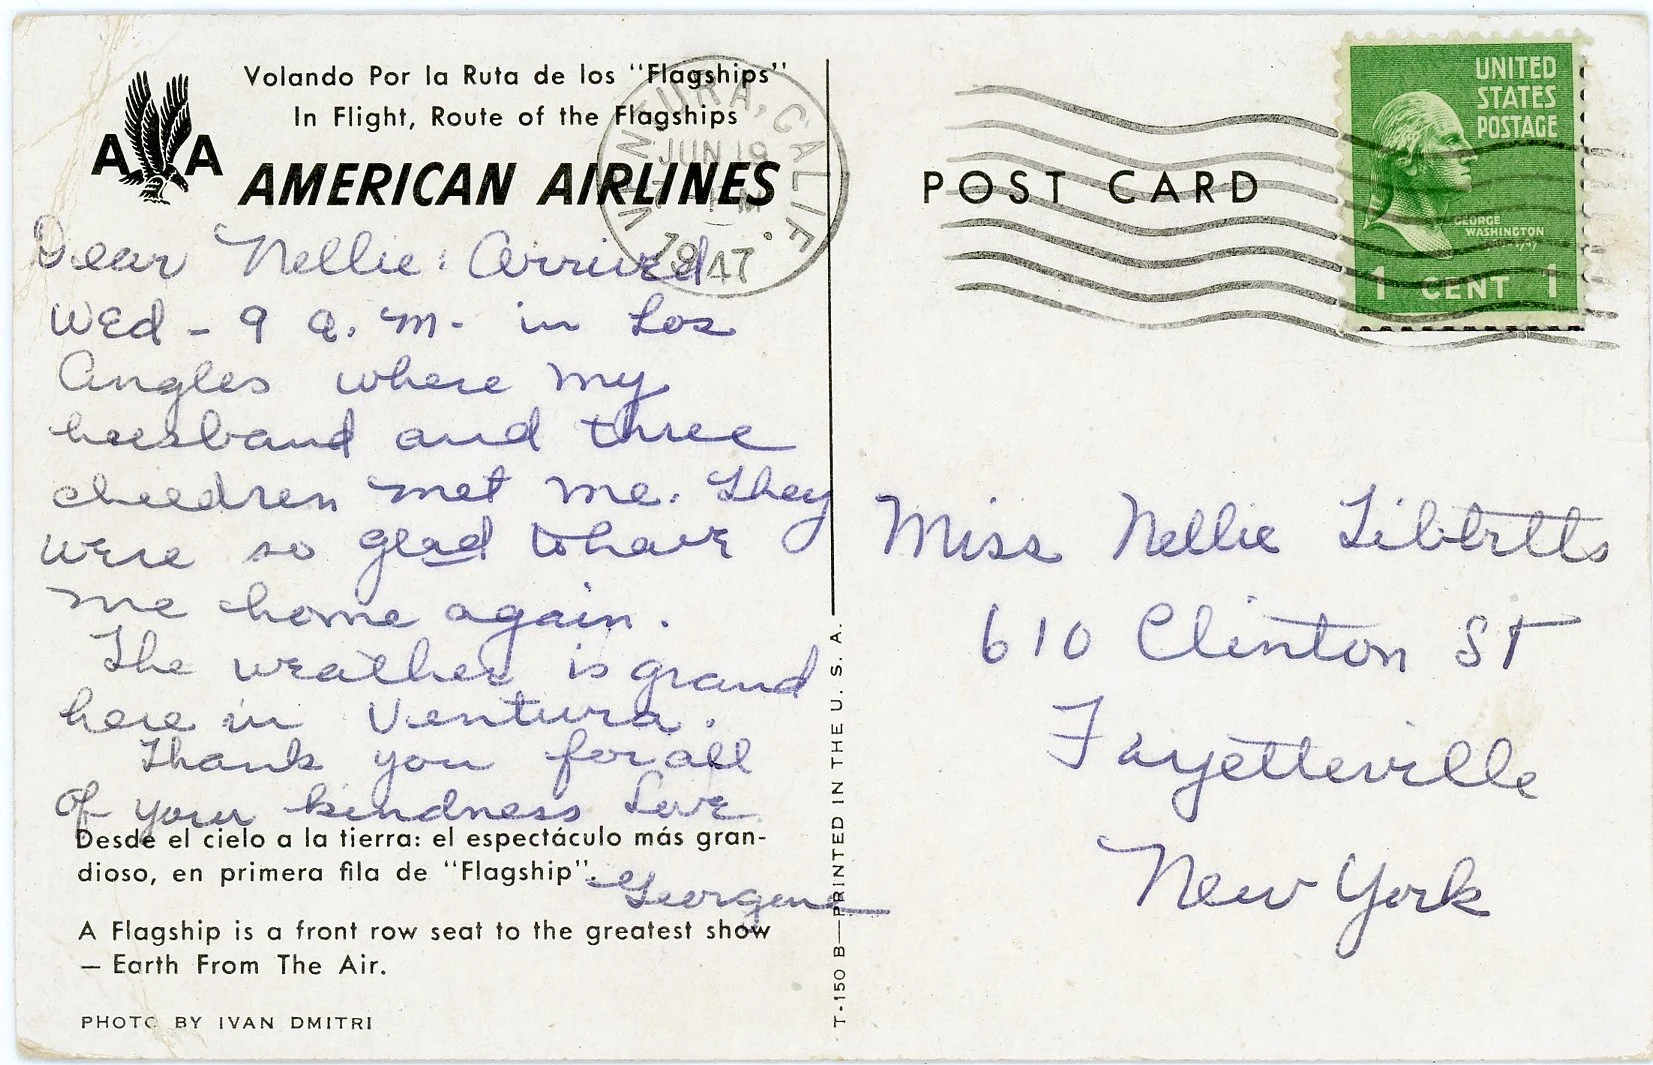 Volando Por la Ruta de los "Flagships"
In Flight, Route of the Flagships
A A
AMERICAN AIRLINES
VENTURA, CALIF.
JUN 19
PM
1947
Dear Nellie: Arrived
Wed - 9 a.m. in Los
Angles where my
husband and three
children met me. They
were so glad to have
me home again.
The weather is grand
here in Ventura.
Thank you for all
of your kindness Love
Georgene
Desde el cielo a la tierra: el espectáculo más gran-
dioso, en primera fila de "Flagship".
A Flagship is a front row seat to the greatest show
— Earth From The Air.
PHOTO BY IVAN DMITRI
T-150 B—PRINTED IN THE U. S. A.
POST CARD
UNITED
STATES
POSTAGE
GEORGE
WASHINGTON
1 CENT 1
Miss Nellie Tibbetts
610 Clinton St
Fayetteville
New York